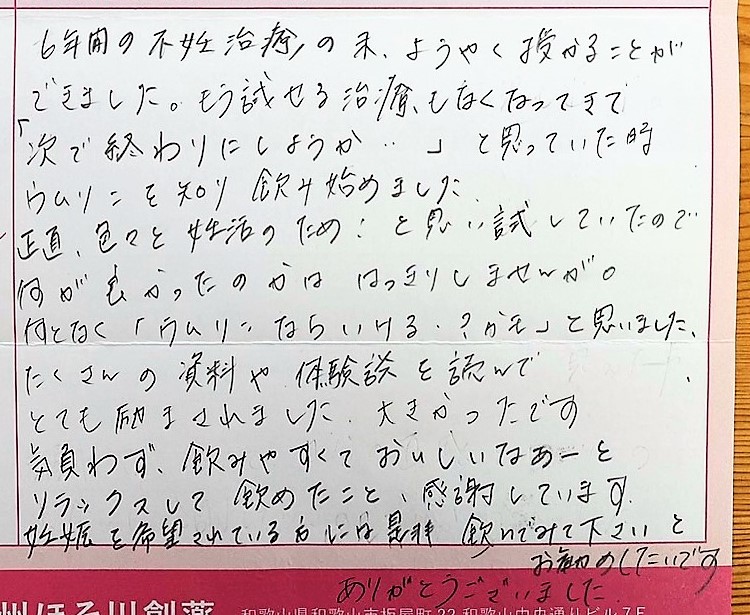 6年間の不妊治療の末、ようやく授かることが
できました。もう試せる治療もなくなってきて
「次で終わりにしようか・・」と思っていた時
ウムリンを知り飲み始めました
正直、色々と妊活のため！と思い試していたので
何が良かったのかははっきりしませんが。
何となく「ウムリンならいける・？かも」と思いました、
たくさんの資料や体験談を読んで
とても励まされました. 大きかったです
気負わず、飲みやすくておいしいなぁーと
リラックスして飲めたこと、感謝しています.
妊娠を希望されている方には是非飲んでみて下さいと
お勧めしたいです
ありがとうございました
州ほそ川創薬 和歌山県和歌山市板屋町22 和歌山中央通りビル7F